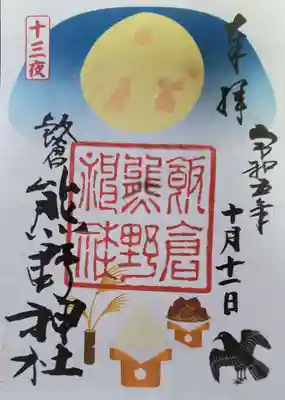 奉拝
令和五年
十月十一日
飯倉
熊野
神社
飯倉
熊野神社
十三夜